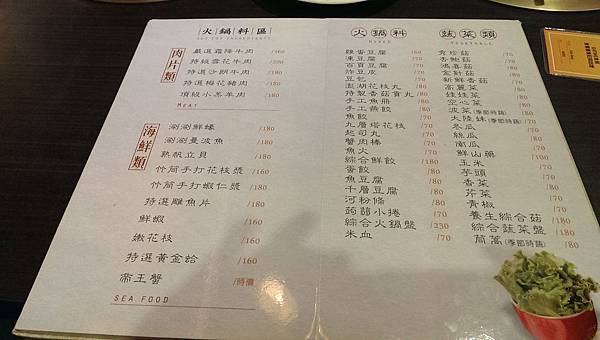 火鍋料區
HOT POT INGREDIENTS
肉片類
嚴選霜降牛肉 /260
特級雪花牛肉 /200
特選沙朗牛肉 /180
特選梅花豬肉 /180
頂級小羔羊肉 /180
MEAT
海鮮類
涮涮鮮蠔 /180
涮涮曼波魚 /180
熟帆立貝 /180
竹筒手打花枝漿 /160
竹筒手打蝦仁漿 /160
特選雕魚片 /180
鮮蝦 /160
嫩花枝 /160
特選黃金蛤 /160
帝王蟹 /時價
SEA FOOD
火鍋料
MIXED
雞蛋豆腐 /60
凍豆腐 /70
百頁豆腐 /70
炸豆皮 /70
豆包 /70
澎湖花枝丸 /80
特製香菇貢丸 /80
手工魚冊 /80
手工燕餃 /70
魚餃 /70
九層塔花枝 /80
起司丸 /70
蟹肉棒 /70
魚火 /70
綜合鮮餃 /180
蛋餃 /70
魚豆腐 /70
千層豆腐 /80
河粉條 /80
蒟蒻小捲 /70
綜合火鍋盤 /230
米血 /70
蔬菜類
VEGETABLE
秀珍菇 /70
杏鮑菇 /70
鴻喜菇 /70
金針菇 /70
新鮮香菇 /80
高麗菜 /80
娃娃菜 /80
空心菜 /80
菠菜(季節時蔬) /80
大陸妹(季節時蔬) /70
冬瓜 /70
絲瓜 /80
南瓜 /70
鮮山藥 /100
玉米 /70
芋頭 /80
香菜 /80
芹菜 /80
青椒 /70
養生綜合菇 /180
綜合蔬菜盤 /180
茼蒿(季節時蔬) /80